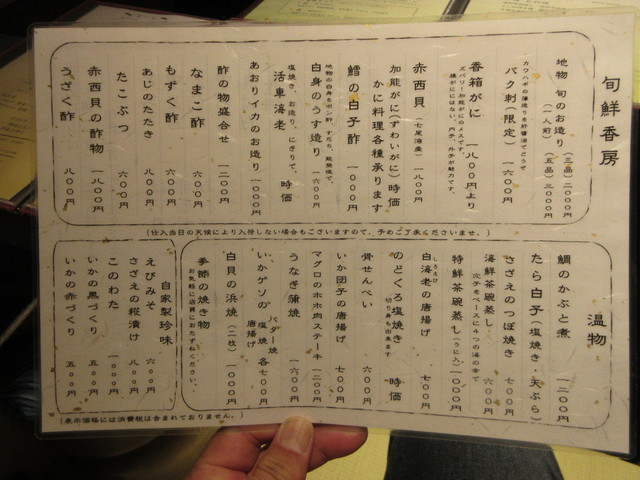 旬鮮香房
地物 旬のお造り (三品) 二〇〇〇円
(一人前) (五品) 三〇〇〇円
カワハギの薄造りを肝醤油でどうぞ
バク刺(限定) 一六〇〇円
香箱がに 一八〇〇円より
ズバリ！加能がにのメスです。
雄がにはない、内子、外子が魅力です。
赤西貝 (七尾湾産) 一八〇〇円
加能がに(ずわいがに) 時価
かに料理各種承ります
鱈の白子酢 一〇〇〇円
白身のうす造り 一六〇〇円
活車海老 時価
塩焼き、お造り、にぎりで。
あおりイカのお造り 一〇〇〇円
酢の物盛合せ 一二〇〇円
なまこ酢 六〇〇円
もずく酢 六〇〇円
あじのたたき 八〇〇円
たこぶつ 六〇〇円
赤西貝の酢物 一八〇〇円
うざく酢 八〇〇円
(仕入当日の天候により入荷しない場合もございますので、予めご了承くださいませ。)
温物
鯛のかぶと煮 一二〇〇円
たら白子(塩焼き・天ぷら)
さざえのつぼ焼き 七〇〇円
海鮮茶碗蒸し 六〇〇円
穴子をベースに4つの海の幸で
特鮮茶碗蒸し (うに入) 一〇〇〇円
白海老の唐揚げ 七〇〇円
しろえび
のどくろ塩焼き 時価
切り身も出来ます
骨せんべい 六〇〇円
いか団子の唐揚げ 七〇〇円
マグロのホホ肉ステーキ 一二〇〇円
うなぎ蒲焼 一六〇〇円
いかゲソの バター焼 塩焼 唐揚げ 各七〇〇円
白貝の浜焼 (二枚) 一〇〇〇円
季節の焼き物
お気軽に店員におたずねください。
自家製珍味
えびみそ 六〇〇円
さざえの糀漬け 八〇〇円
このわた 一〇〇〇円
いかの黒づくり 五〇〇円
いかの赤づくり 五〇〇円
(表示価格には消費税は含まれておりません。)